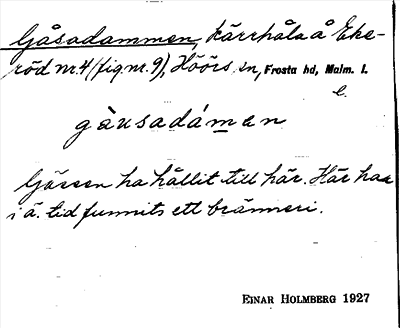 Gåsadammen, kärrhåla å Eke-
röd nr 4 (fig nr. 9), Höörs sn, Frosta hd, Malm. l.
e.
gàusadámen
Gässen ha hållit till här. Här har
i ä. tid funnits ett bränneri.
EINAR HOLMBERG 1927